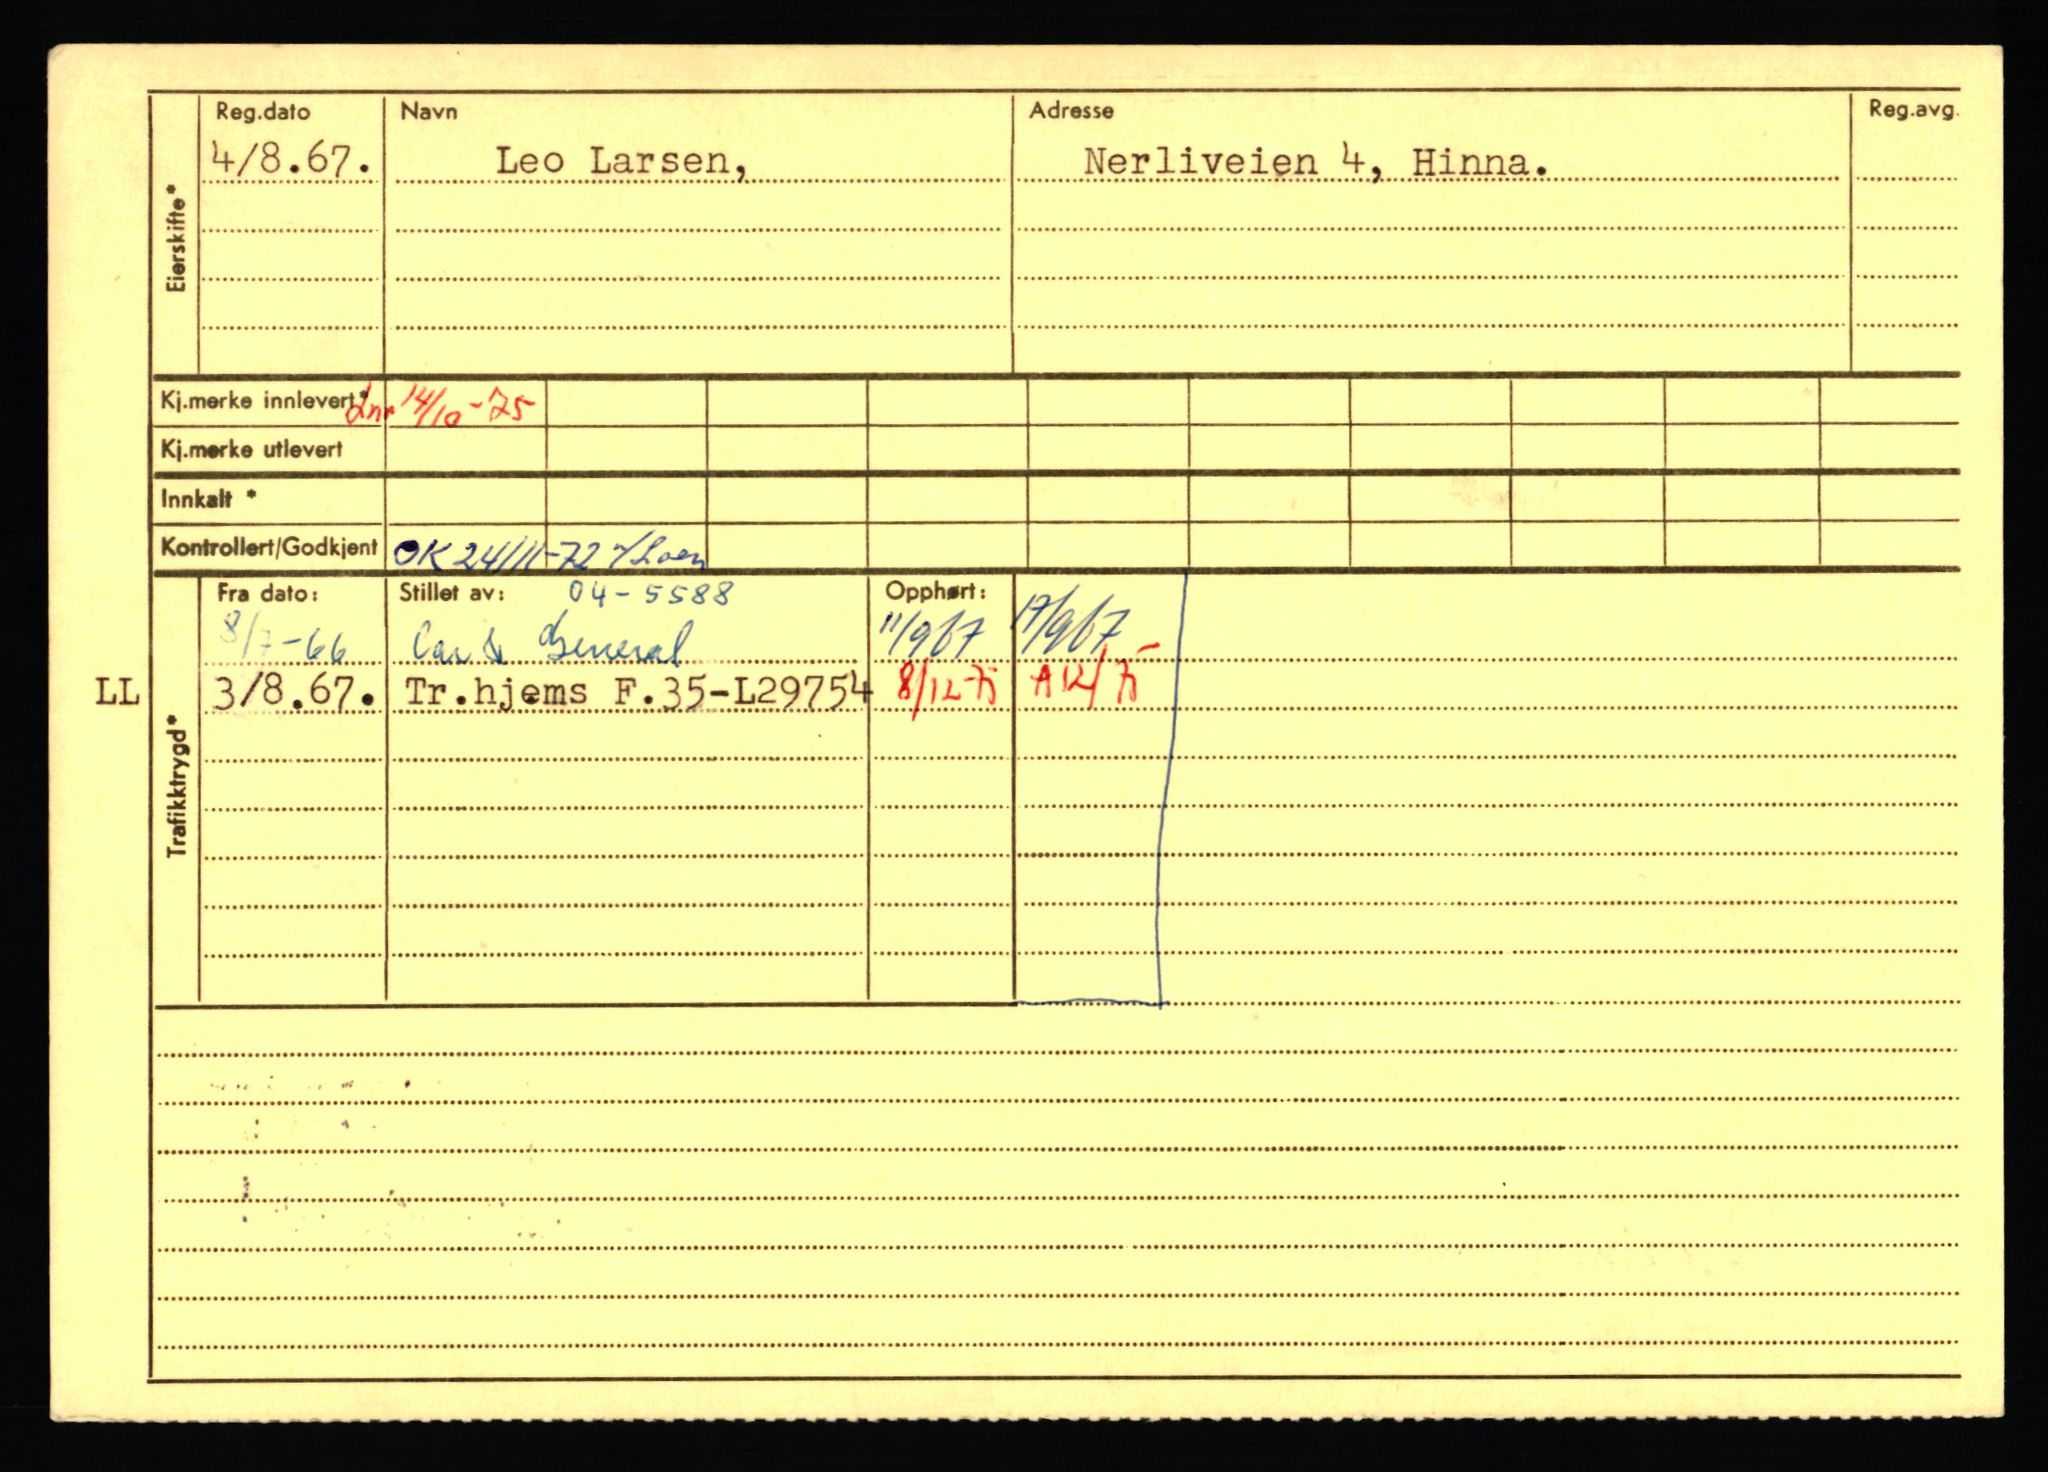 Reg.dato Navn Adresse Reg.avg.
4/8.67. Leo Larsen, Nerliveien 4, Hinna.
Eierskifte*
Kj.merke innlevert* 14/10-75
Kj.merke utlevert
Innkalt *
Kontrollert/Godkjent OK 24/11-72
Fra dato: Stillet av: 04-5588 Opphørt:
8/7-66 Car & General 11/9 67 19/9 67
LL 3/8.67. Tr.hjems F.35-L29754 8/12-75 A 12/75
Trafikktrygd*